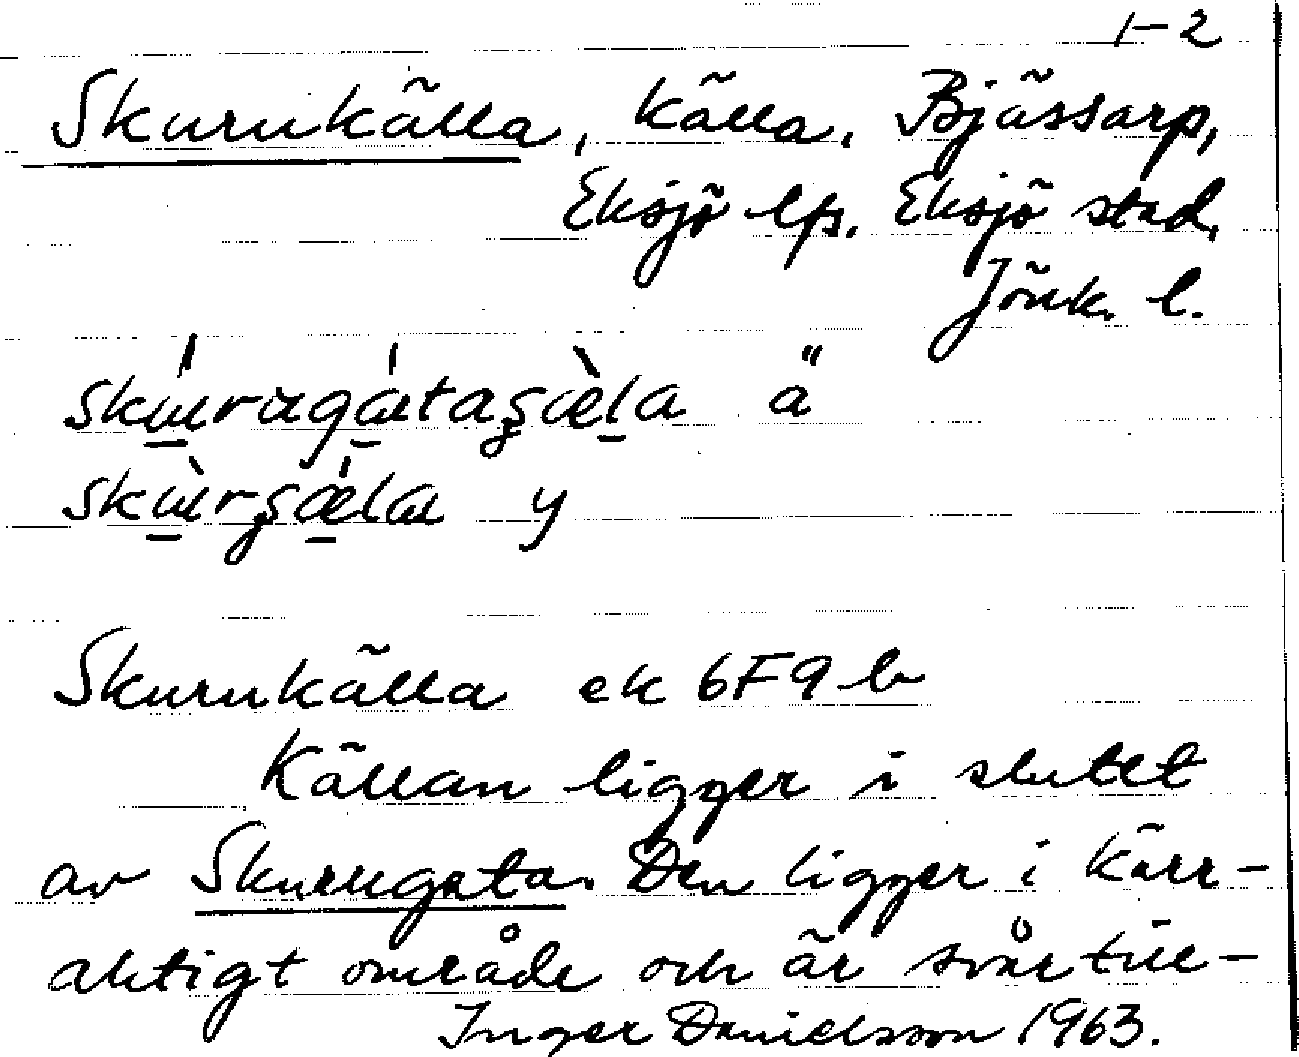 1-2
Skurukälla, källa, Bjässarp,
Eksjö lfs. Eksjö stad,
Jönk. l.
ä
y
Skurukälla ek 6F9b
Källan ligger i slutet
av Skurugata. Den ligger i kärr-
aktigt område och är svårtill-
Inger Danielsson 1963.